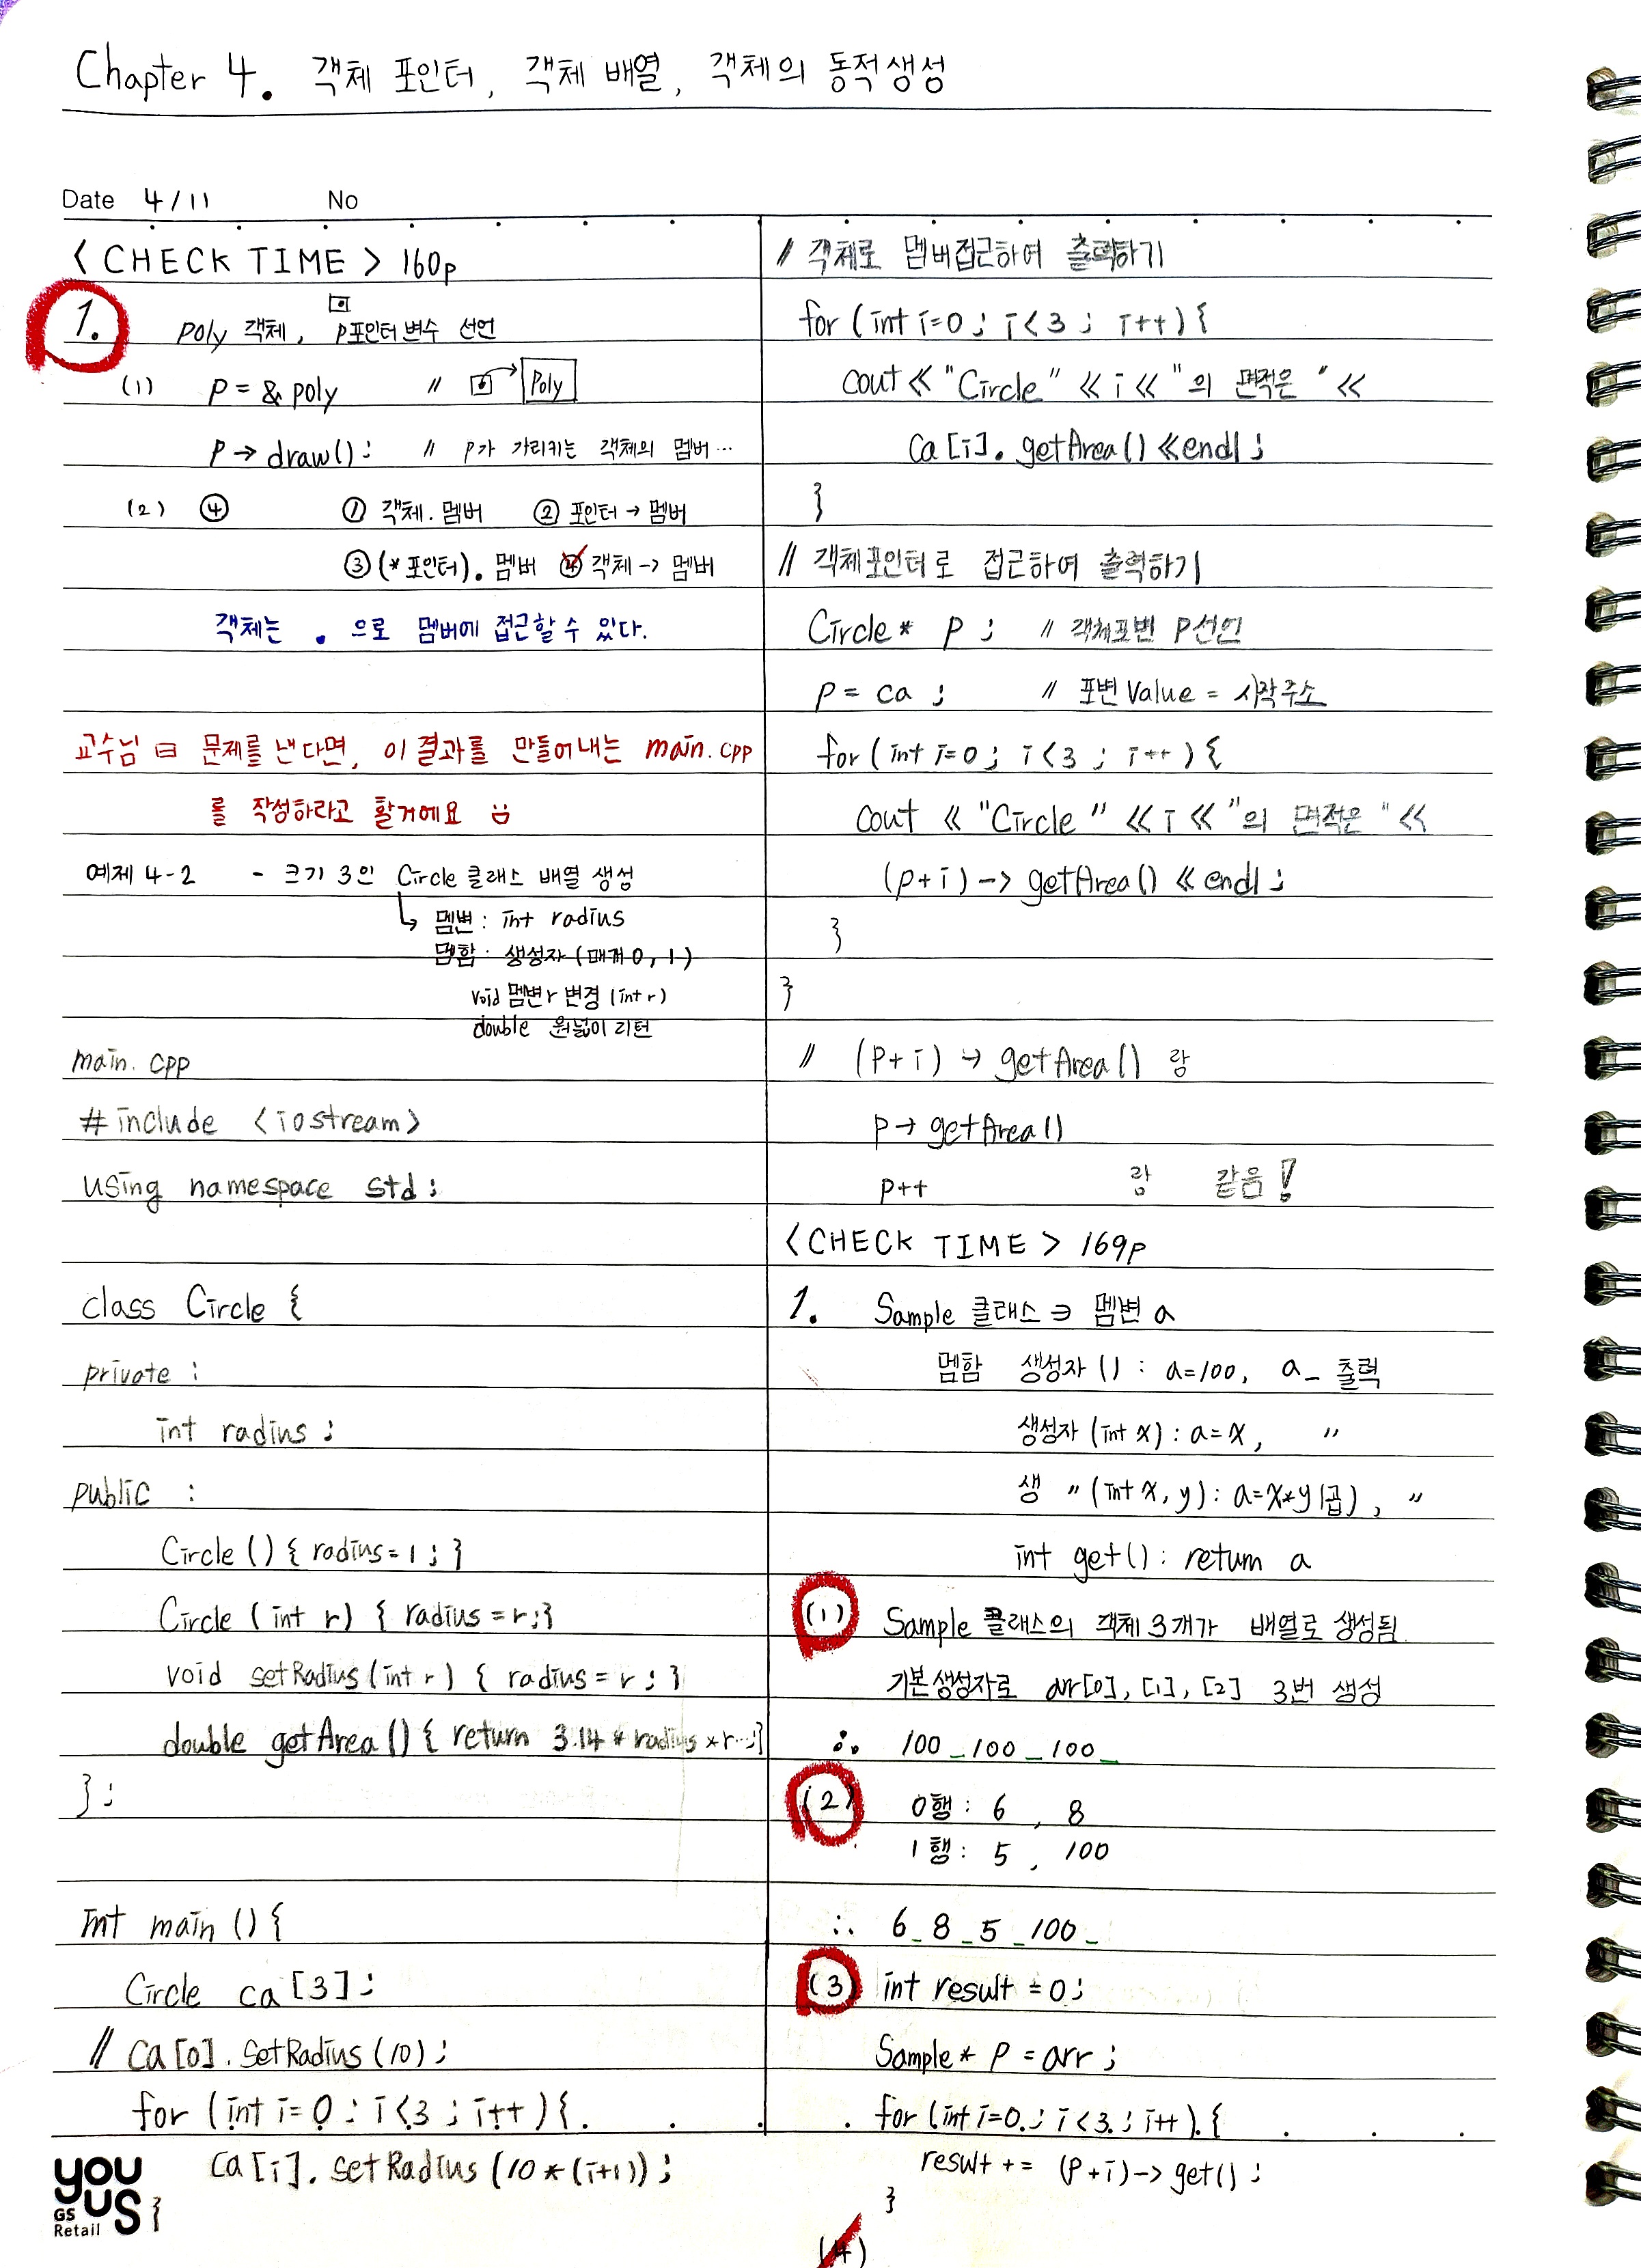 Chapter 4. 객체 포인터, 객체 배열, 객체의 동적생성
Date 4/11 No
<CHECK TIME> 160p
1. poly 객체, p포인터변수 선언
(1) p = & poly // Poly
p → draw(); // p가 가리키는 객체의 멤버…
(2) ④ ① 객체.멤버 ② 포인터 → 멤버
③ (*포인터). 멤버 ④ 객체 -> 멤버
객체는 . 으로 멤버에 접근할 수 있다.
교수님 문제를 낸다면, 이 결과를 만들어내는 main.cpp
를 작성하라고 할거에요
예제 4-2 - 크기 3인 Circle 클래스 배열 생성
↳ 멤변 : int radius
멤함 : 생성자 (매개 0, 1)
void 멤변r 변경 (int r)
double 원넓이 리턴
main.cpp
#include <iostream>
using namespace std;
class Circle {
private :
int radius ;
public :
Circle () { radius = 1 ; }
Circle (int r) { radius = r ; }
void setRadius (int r) { radius = r ; }
double getArea () { return 3.14 * radius * r…;}
} ;
int main () {
Circle ca [3] ;
// ca [0]. setRadius (10) ;
for (int i = 0 ; i < 3 ; i++) {
ca [i]. setRadius (10 * (i+1)) ;
}
you
us
GS
Retail
// 객체로 멤버접근하여 출력하기
for (int i=0 ; i < 3 ; i++) {
cout << "Circle" << i << "의 면적은 " <<
ca [i]. getArea () << endl ;
}
// 객체포인터로 접근하여 출력하기
Circle* p ; // 객체포변 p선언
p = ca ; // 포변 Value = 시작주소
for (int i=0 ; i < 3 ; i++) {
cout << "Circle " << i << "의 면적은 " <<
(p+i) -> getArea () << endl ;
}
}
// (p+i) → getArea () 랑
p → getArea ()
p++ 랑 같음!
<CHECK TIME> 169p
1. Sample 클래스 ∋ 멤변 a
멤함 생성자 () : a=100, a_ 출력
생성자 (int x) : a=x, 〃
생 〃 (int x, y) : a=x*y (곱), 〃
int get () : return a
(1) Sample 클래스의 객체 3개가 배열로 생성됨.
기본생성자로 arr[0], [1], [2] 3번 생성
∴ 100_100_100_
(2) 0행 : 6, 8
1행 : 5, 100
∴ 6_8_5_100_
(3) int result = 0;
Sample* p = arr ;
for (int i=0 ; i < 3 ; i++) {
result += (p+i) -> get () ;
}
(4)